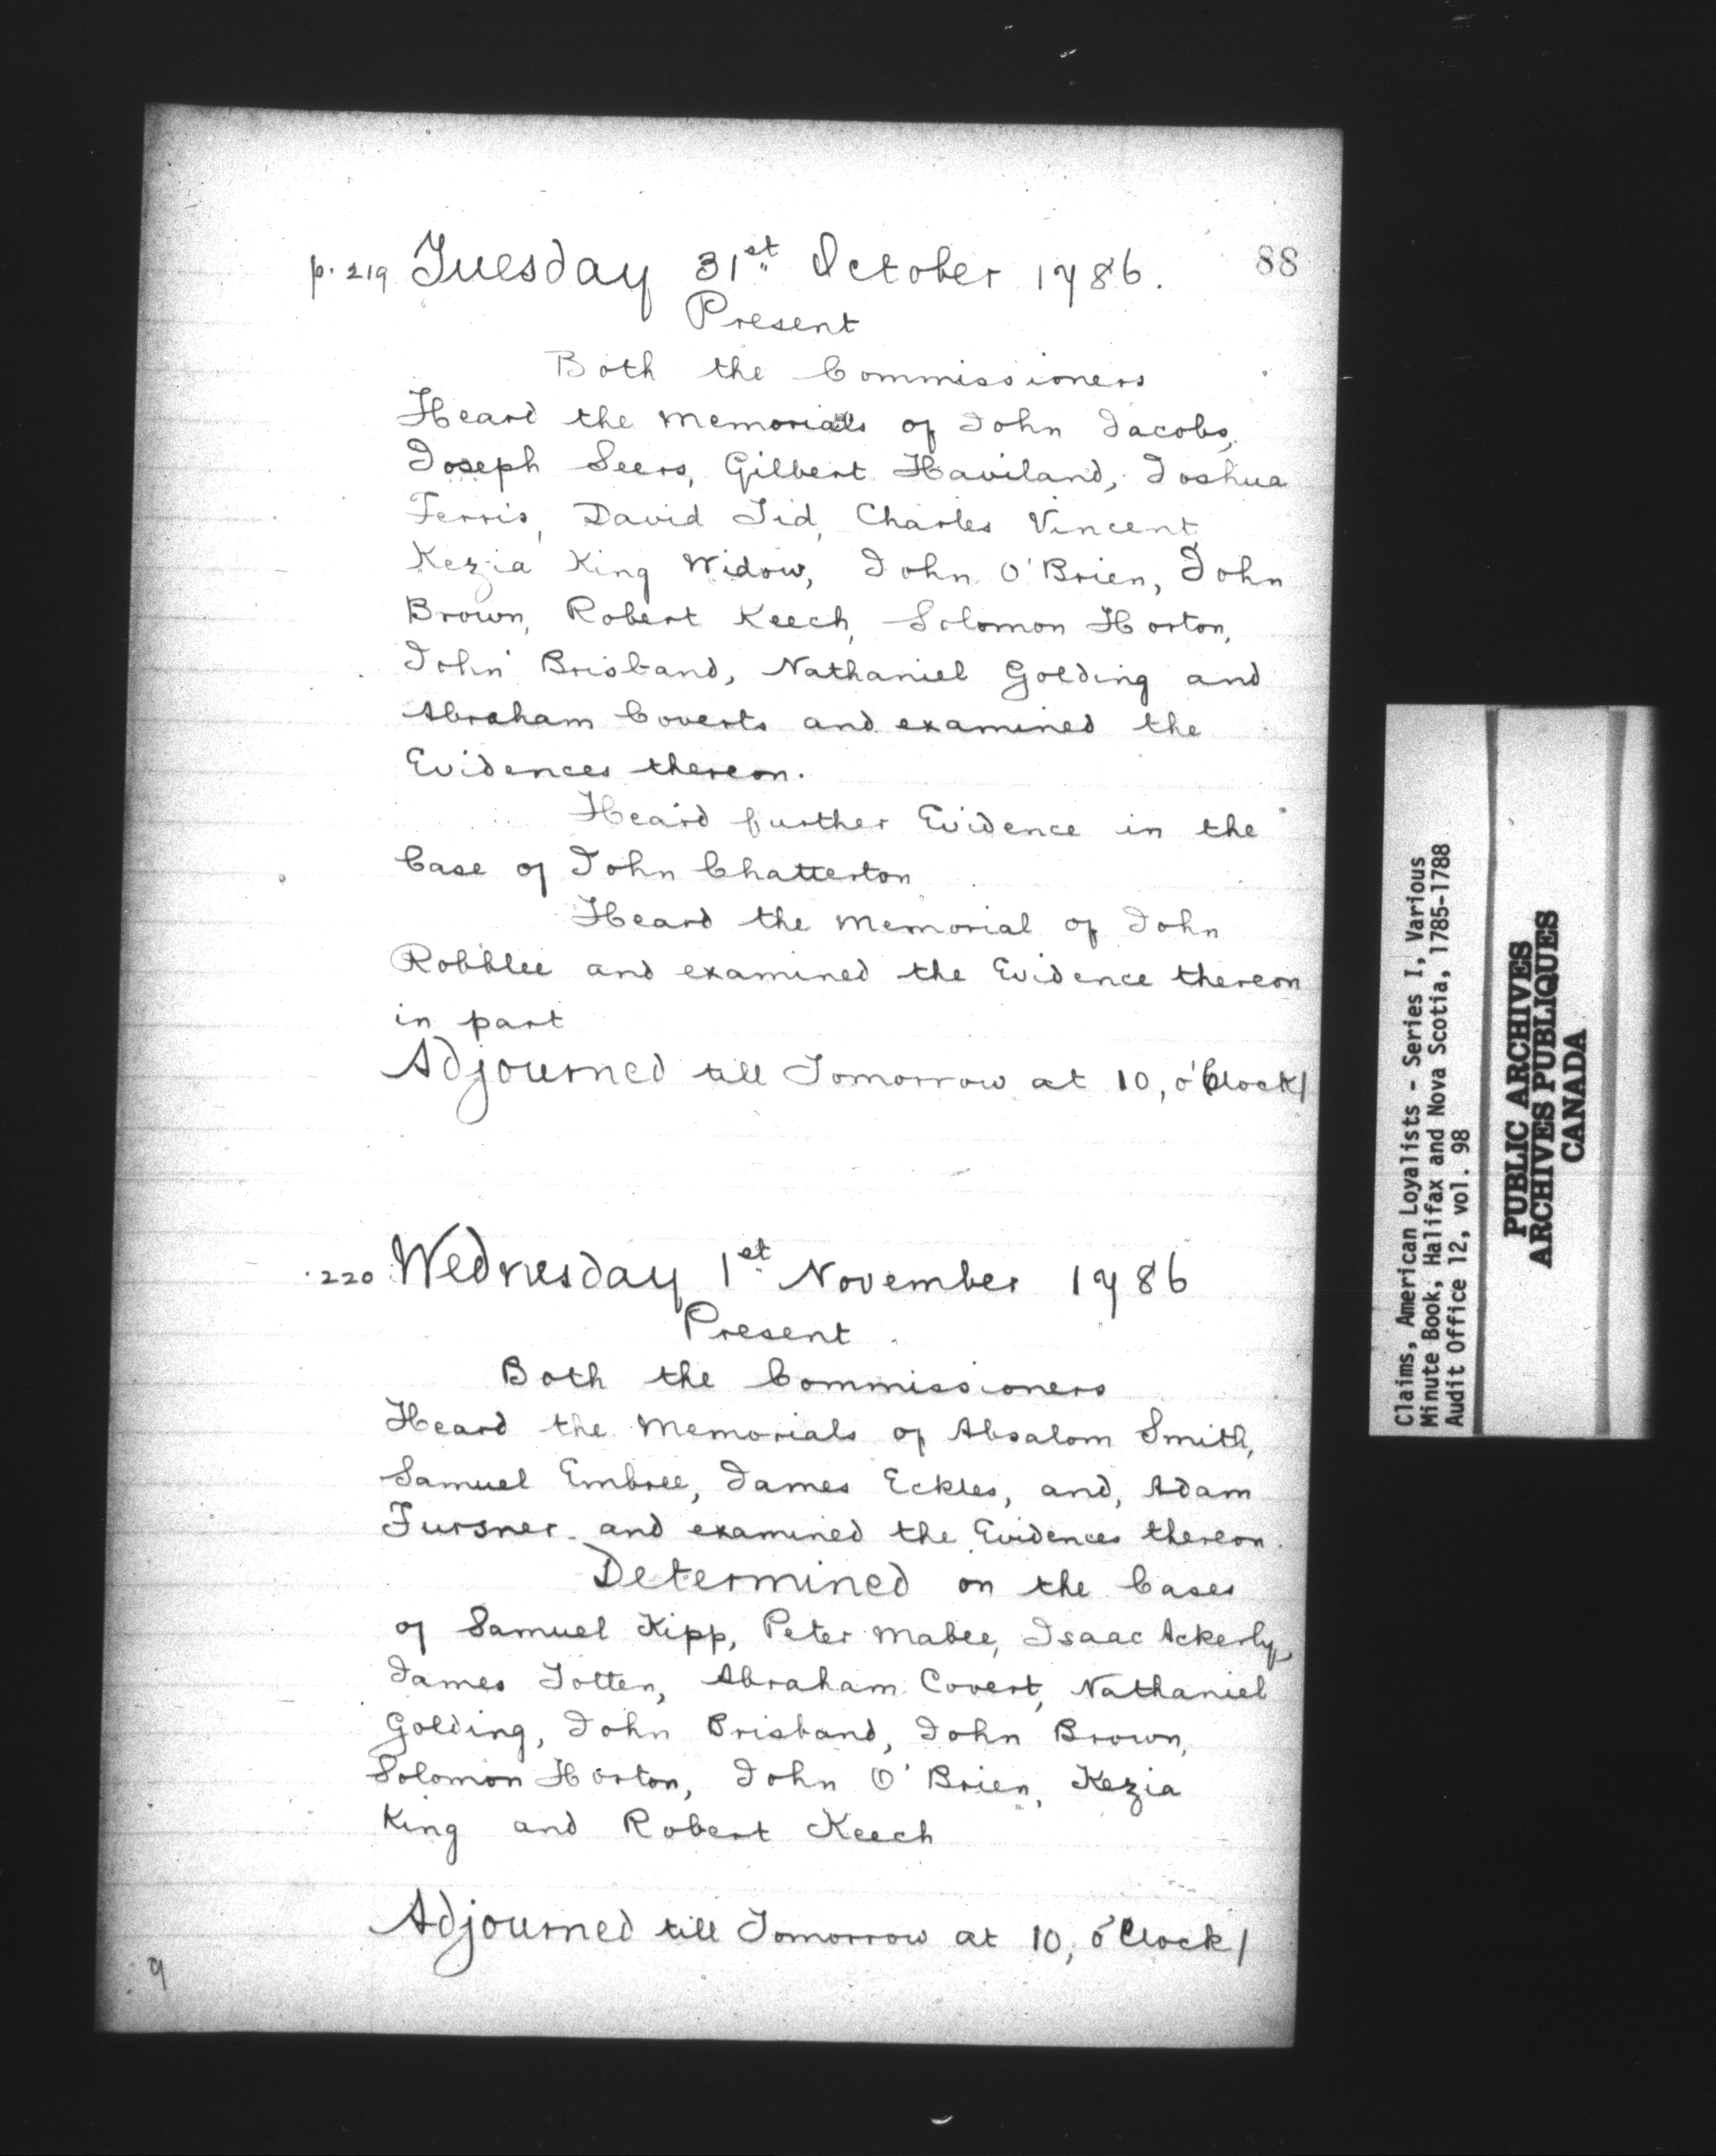 88
p. 219 Tuesday 31st October 1786.
Present
Both the Commissioners
Heard the Memorials of John Jacobs,
Joseph Seers, Gilbert Haviland, Joshua
Ferris, David Tid, Charles Vincent,
Kezia King Widow, John O'Brien, John
Brown, Robert Keech, Solomon Horton,
John Brisband, Nathaniel Golding and
Abraham Coverts and examined the
Evidences thereon.
Heard further Evidence in the
Case of John Chatterton
Heard the Memorial of John
Robblee and examined the Evidence thereon
in part
Adjourned till Tomorrow at 10, o'Clock/
220 Wednesday 1st November 1786
Present
Both the Commissioners
Heard the Memorials of Absalom Smith,
Samuel Embree, James Eckles, and, Adam
Fursner and examined the Evidences thereon.
Determined on the Cases
of Samuel Kipp, Peter Mabee, Isaac Ackerly,
James Totten, Abraham Covert, Nathaniel
Golding, John Brisband, John Brown,
Solomon Horton, John O'Brien, Kezia
King and Robert Keech
Adjourned till Tomorrow at 10, o'Clock/
9
Claims, American Loyalists - Series I, Various
Minute Book, Halifax and Nova Scotia, 1785-1788
Audit Office 12, vol. 98
PUBLIC ARCHIVES
ARCHIVES PUBLIQUES
CANADA